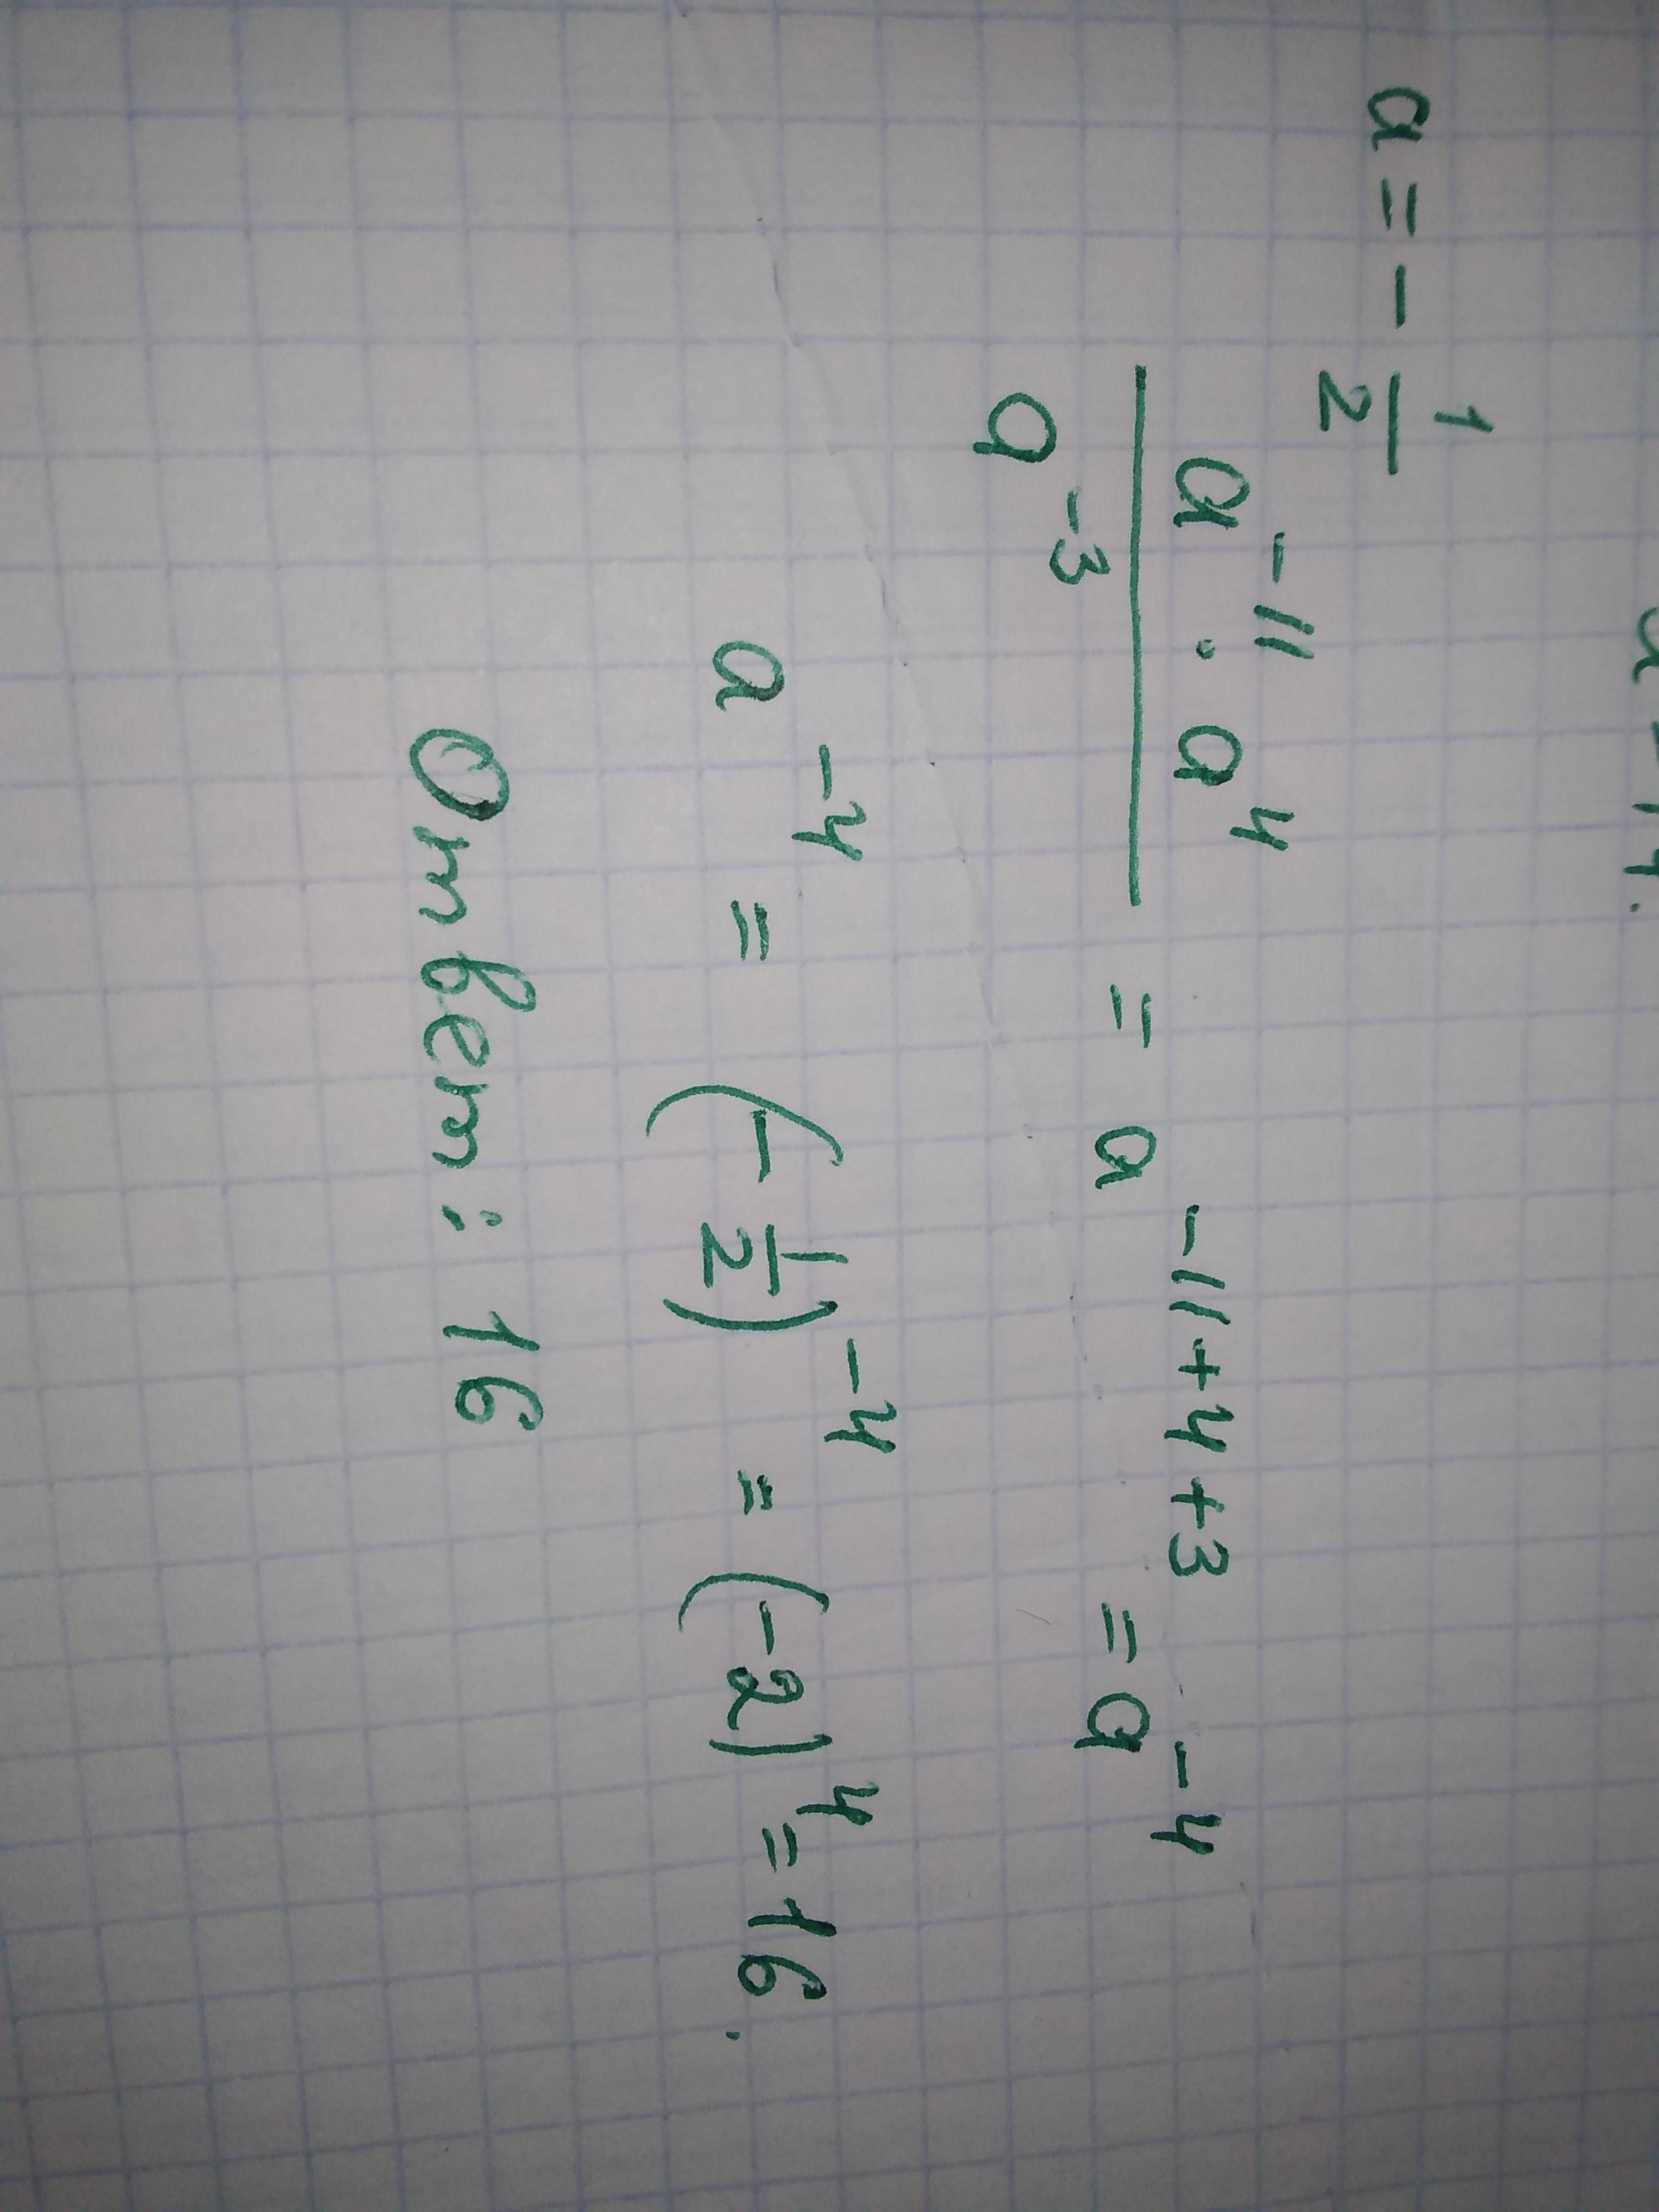 a = - 1/2
a^-11 · a^4 / a^-3 = a^-11+4+3 = a^-4
a^-4 = (- 1/2)^-4 = (-2)^4 = 16.
Ответ: 16